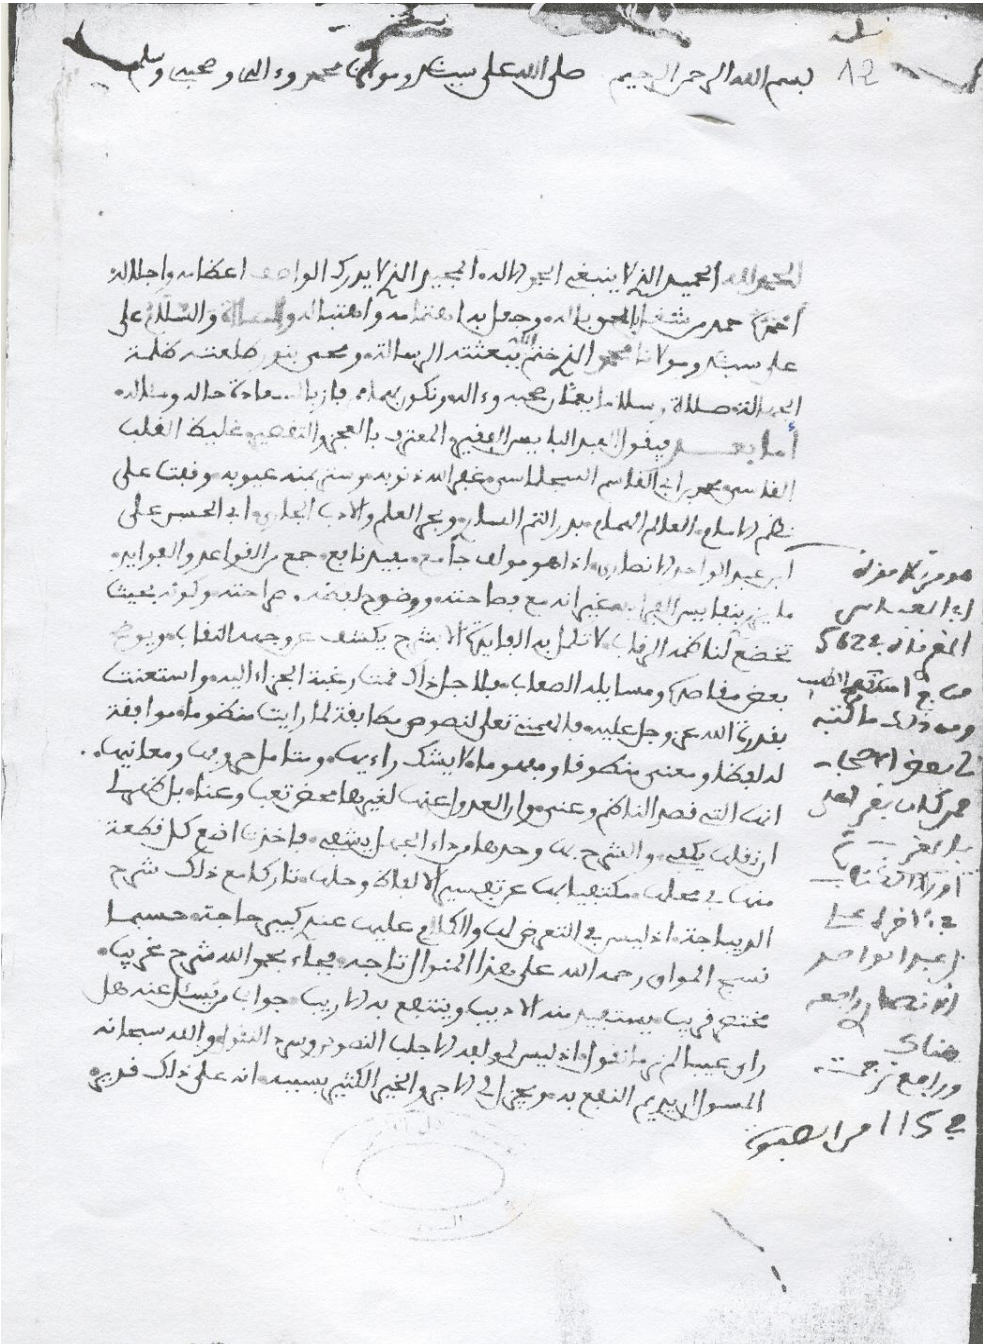 12
بسم الله الرحمن الرحيم صلى الله على سيدنا ومولانا محمد وءاله وصحبه وسلم
الحمد لله الحميد الذي لا ينبغي الحمد الا له المجيد الذي لا يدرك الواصف اعظامه واجلاله
أحمده حمد من شغله بالحمد باله وجعل به اهتمامه واهتباله والصلاة والسلام على
على سيدنا ومولانا محمد الذي ختم الله ببعثته الرسالة ومحى بنور طلعته ظلمة
الجهالة صلاة وسلاما يعمان صحبه وءاله ونكون بهما ممن فاز بالسعادة حاله ومئاله
أما بعد فيقول العبد البايس الفقير المعترف بالعجز والتقصير غليظ القلب
القاسي محمد بن ابي القاسم السجلماسي غفر الله ذنوبه وستر بمنه عيوبه وقفت على
نظم الامام العالم الهمام بدر التم الساري وبحر العلم والادب الجاري ابي الحسن علي
ابن عبد الواحد الانصاري اذ هو مولف جامع مفيد نافع جمع من القواعد والفوايد
ما ينيف بنفايس الفرايد غير انه مع فصاحته ووضوح لفظه وصراحته وكونه بحيث
تخضع لناظمه الرقاب لا تكمل به الفايدة الا بشرح يكشف عن وجهه النقاب ويوضح
بعض مقاصده ومسايله الصعاب فلاجل ذلك قمت رغبة الجزاء اليه واستعنت
بقدرة الله عز وجل عليه فالهمني تعلى لنصوص مطابقة لما رايت منظوما موافقة
له لفظا ومعنى منطوقا ومفهوما لا يشك راءيها ومتامل حروفها ومعانيها
انها التي قصد الناظم وعنى وان العدول عنها لغيرها محض تعب وعناء بل ظهر لي
ان نقلها يكفي والشرح بها وحدها من داء الجهل يشفي فاخذت اضع كل قطعة
منها في محلها مكتفيا بها عن تفسير الالفاظ وحلها تاركا مع ذلك شرح
الديباجة اذ ليس في التعرض لها والكلام عليها عندي كبير حاجة حسبما
نسج المواق رحمه الله على هذا المنوال تاجه فجاء بحمد الله شرح غريب
مختصر قريب يستفيد منه الاديب وينتفع به الاريب جواب من يسئل عنه هل
راى عيبا لم نر ما نقول اذ ليس لمولفه الا جلب النصوص وسرد النقول والله سبحانه
المسول ان يديم النفع به ويجزل لي الاجر والخير الكثير بسببه انه على ذلك قدير
هو من تلامذة
ابي العباس
المقري
في بعض
ابن عبد الواحد
الانصاري راجعه
هناك
وراجع ترجمته
في 115 من الصفوة